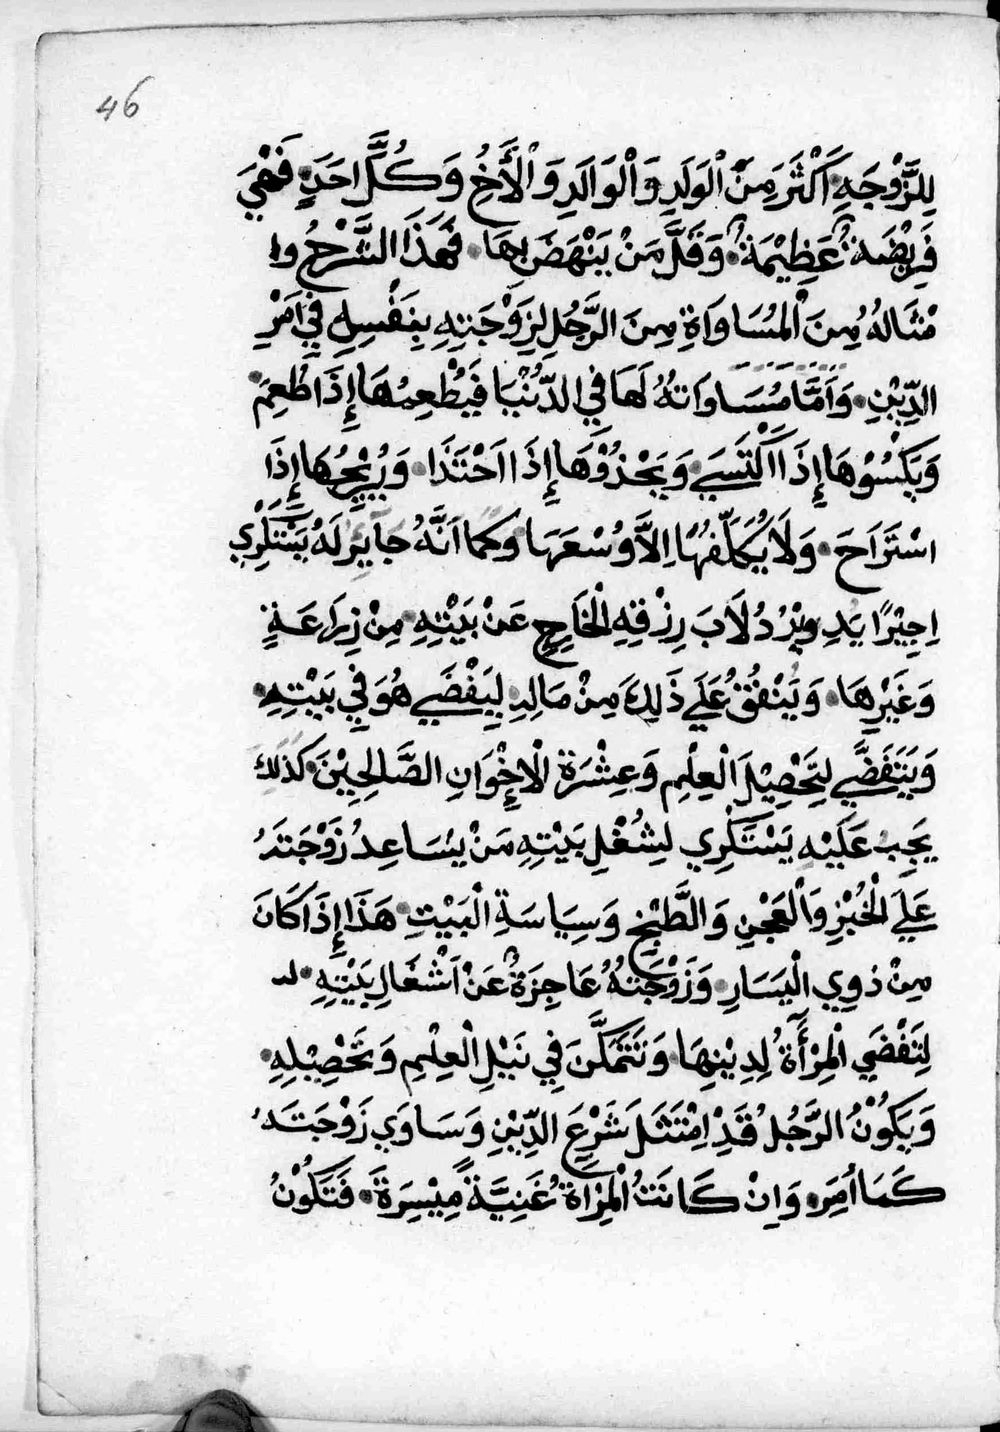 46
لِلزَّوْجَةِ اَكْثَرَ مِنَ الْوَلَدِ وَالْوَالَدِ وَالْأَخِ وَكُلِّ اَحَدٍ فَهْيَ
فَرِيْضَةٌ عَظِيْمَةٌ وَقَلَّ مَنْ يَنْهَضَ بِهَا فَهَذَا الشَّرْحُ وا
مْثَالهُ مِنَ الْمُسَاوَاةِ مِنَ الرَّجُلِ لِزَوْجَتِهِ بِنَفْسِهِ فِي اَمْرِ
الدِّيْنِ وَاَمَّا مُسَاوَاتهُ لَهَا فِي الدُّنْيَا فَيُطْعِمُهَا إِذَا طُعِمَ
وَيَكْسُوْهَا إِذَا اكْتَسَي وَيَحْذُوْهَا إِذَا احْتَذَا وَيُرِيْحُهَا إِذَا
اسْتَرَاحَ وَلَا يُكَلِّفُهَا اِلاَّ وُسْعَهَا وَكَمَا اَنَّهُ جَآيِز لَهُ يَسْتَكْرِي
اجِيْرًا يَدِ وِيْرُدُ لَابَ رِزْقِهِ الْخَارِج عَنْ بَيْتِهِ مِنْ زِرَاعَةٍ
وَغَيْرِهَا وَيَنْفُقُ عَلَي ذَلِكَ مِنْ مَالِهِ لِيَفْضَي هُوَ فِي بَيْتِهِ
وَيَتَفَضَّي لِتَحْصِيْلَ الْعِلْمِ وَعِشْرَة الْإِخْوَانِ الصَّالِحِيْنَ كَذَلِكَ
يَجِبُ عَلَيْهِ يَسْتَكْرِي لِشُغْلِ بَيْتِهِ مَنْ يسَاعِدُ زَوْجَتَهُ
عَلَي الْخُبْزِ وَالْعَجْنِ وَالطَّبْخِ وَسِيَاسَةِ الْبَيْتِ هَذَا إِذَا كَانَ
مِنْ ذوِي الْيَسَارِ وَزَوْجَتهُ عَاجِزَةٌ عَنْ اَشْغَالِ بَيْتِهِ
لِتَفْضَي الْمِرْأَةُ لِدِيْنِهَا وَتَتَمَكَّنَ فِي نَيْلِ الْعِلْمِ وَتَحْصِيْلِهِ
وَيَكُوْنُ الرَّجُلُ قَدِ اِمْتَثَلَ شَرْعَ الدِّيْنِ وَسَاوَي زَوْجَتَهُ
كَمَا اُمِرَ وَاِنْ كَانَتْ الْمِرْاةُ غَنِيَّةً مِيْسِرَةَ فَتَكُوْنُ